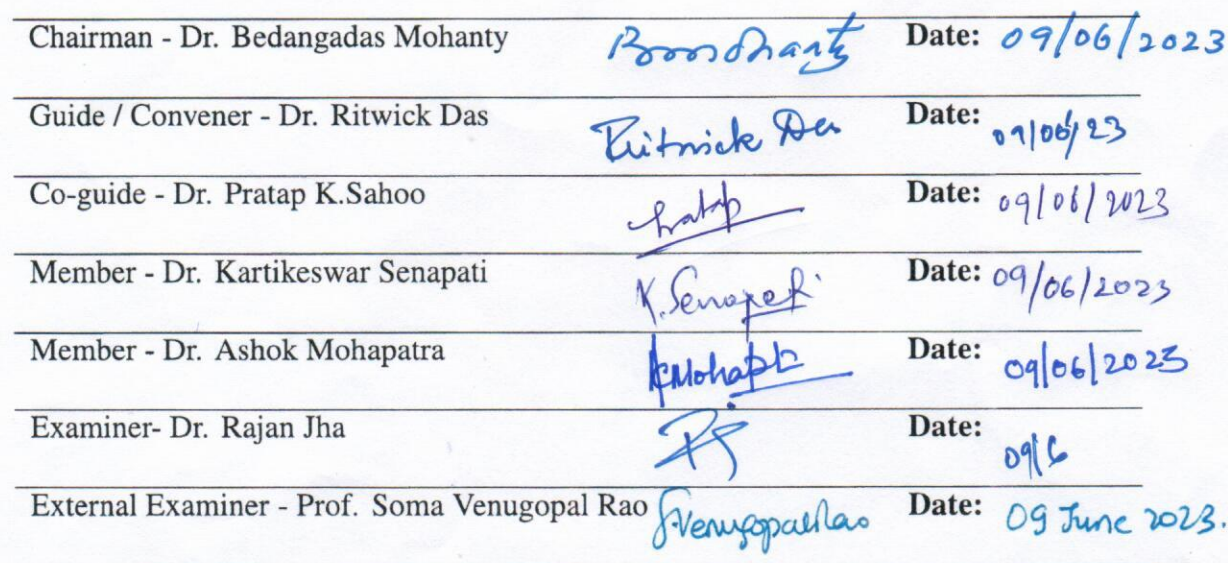 Chairman - Dr. Bedangadas Mohanty Date: 09/06/2023
Guide / Convener - Dr. Ritwick Das Ritwick Das Date: 09/06/23
Co-guide - Dr. Pratap K.Sahoo Pratap Date: 09/06/2023
Member - Dr. Kartikeswar Senapati K. Senapati Date: 09/06/2023
Member - Dr. Ashok Mohapatra Date: 09/06/2023
Examiner- Dr. Rajan Jha Date: 09/6
External Examiner - Prof. Soma Venugopal Rao SVenugopalRao Date: 09 June 2023.